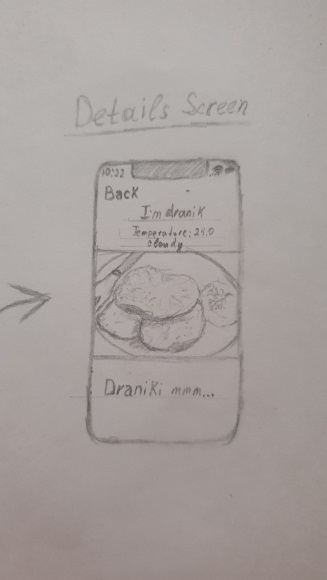 Details Screen
10:22
Back
I'm dranik
Temperature: 24.0
cloudy
Draniki mmm...